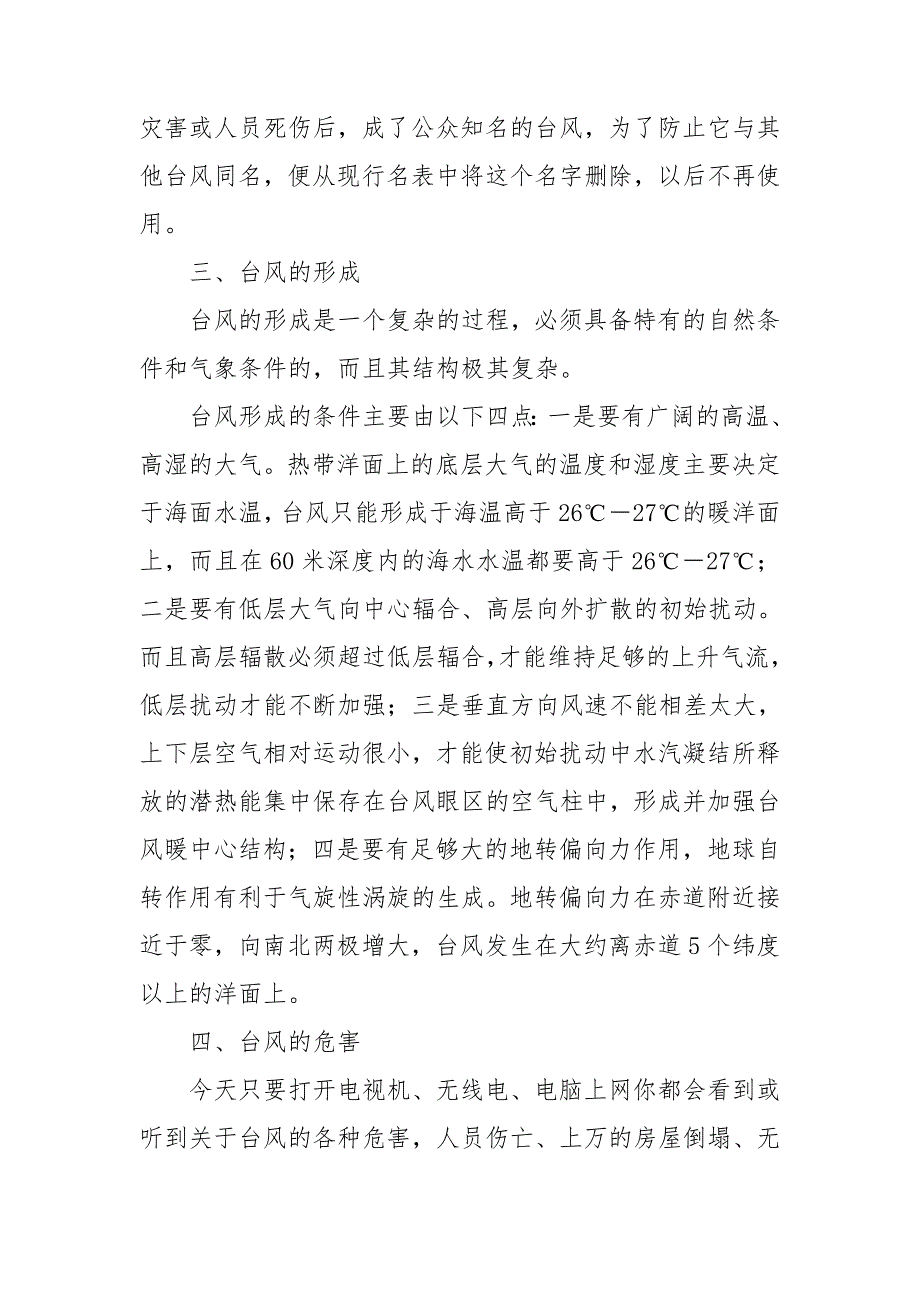 灾害或人员死伤后，成了公众知名的台风，为了防止它与其
他台风同名，便从现行名表中将这个名字删除，以后不再使
用。
三、台风的形成
台风的形成是一个复杂的过程，必须具备特有的自然条
件和气象条件的，而且其结构极其复杂。
台风形成的条件主要由以下四点：一是要有广阔的高温、
高湿的大气。热带洋面上的底层大气的温度和湿度主要决定
于海面水温，台风只能形成于海温高于26℃－27℃的暖洋面
上，而且在60米深度内的海水水温都要高于26℃－27℃；
二是要有低层大气向中心辐合、高层向外扩散的初始扰动。
而且高层辐散必须超过低层辐合，才能维持足够的上升气流，
低层扰动才能不断加强；三是垂直方向风速不能相差太大，
上下层空气相对运动很小，才能使初始扰动中水汽凝结所释
放的潜热能集中保存在台风眼区的空气柱中，形成并加强台
风暖中心结构；四是要有足够大的地转偏向力作用，地球自
转作用有利于气旋性涡旋的生成。地转偏向力在赤道附近接
近于零，向南北两极增大，台风发生在大约离赤道5个纬度
以上的洋面上。
四、台风的危害
今天只要打开电视机、无线电、电脑上网你都会看到或
听到关于台风的各种危害，人员伤亡、上万的房屋倒塌、无